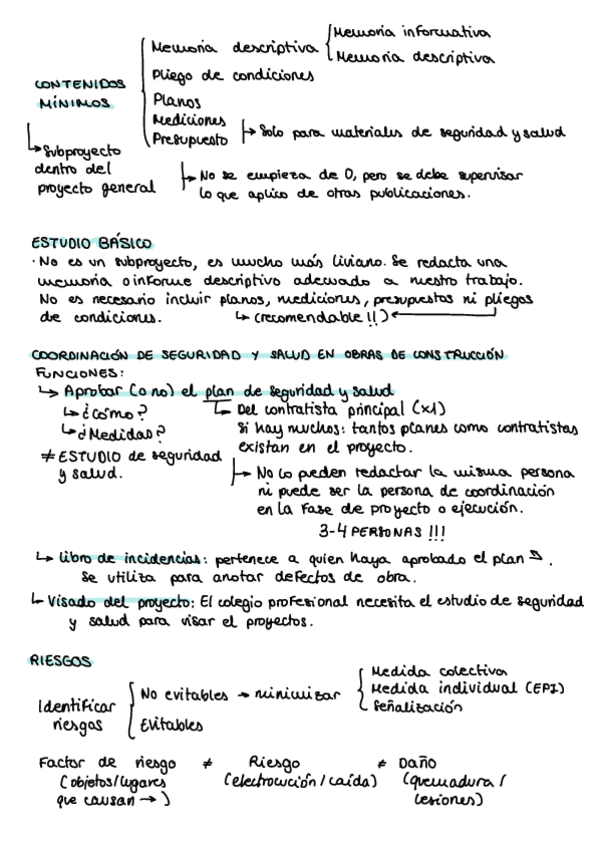 CONTENIDOS MÍNIMOS
Memoria descriptiva
Memoria informativa
Memoria descriptiva
Pliego de condiciones
Planos
Mediciones
Presupuesto
↳ Solo para materiales de seguridad y salud
↳ Subproyecto
dentro del
proyecto general
↳ No se empieza de 0, pero se debe supervisar
lo que aplico de otras publicaciones.
ESTUDIO BÁSICO
· No es un subproyecto, es mucho más liviano. Se redacta una
memoria o informe descriptivo adecuado a nuestro trabajo.
No es necesario incluir planos, mediciones, presupuestos ni pliegos
de condiciones. ↳ (recomendable!!) ←
COORDINACIÓN DE SEGURIDAD Y SALUD EN OBRAS DE CONSTRUCCIÓN
FUNCIONES:
↳ Aprobar (o no) el plan de seguridad y salud
↳ ¿Cómo?
↳ ¿Medidas?
≠ ESTUDIO de seguridad
y salud.
↳ Del contratista principal (x1)
Si hay muchos: tantos planes como contratistas
existan en el proyecto.
↳ No lo pueden redactar la misma persona
ni puede ser la persona de coordinación
en la fase de proyecto o ejecución.
3-4 PERSONAS !!!
↳ Libro de incidencias: pertenece a quien haya aprobado el plan.
Se utiliza para anotar defectos de obra.
↳ Visado del proyecto: El colegio profesional necesita el estudio de seguridad
y salud para visar el proyectos.
RIESGOS
Identificar
riesgos
No evitables → minimizar
Medida colectiva
Medida individual (EPI)
Señalización
Evitables
Factor de riesgo ≠ Riesgo ≠ Daño
(objetos/lugares (electrocución / caída) (quemadura /
que causan → ) lesiones)